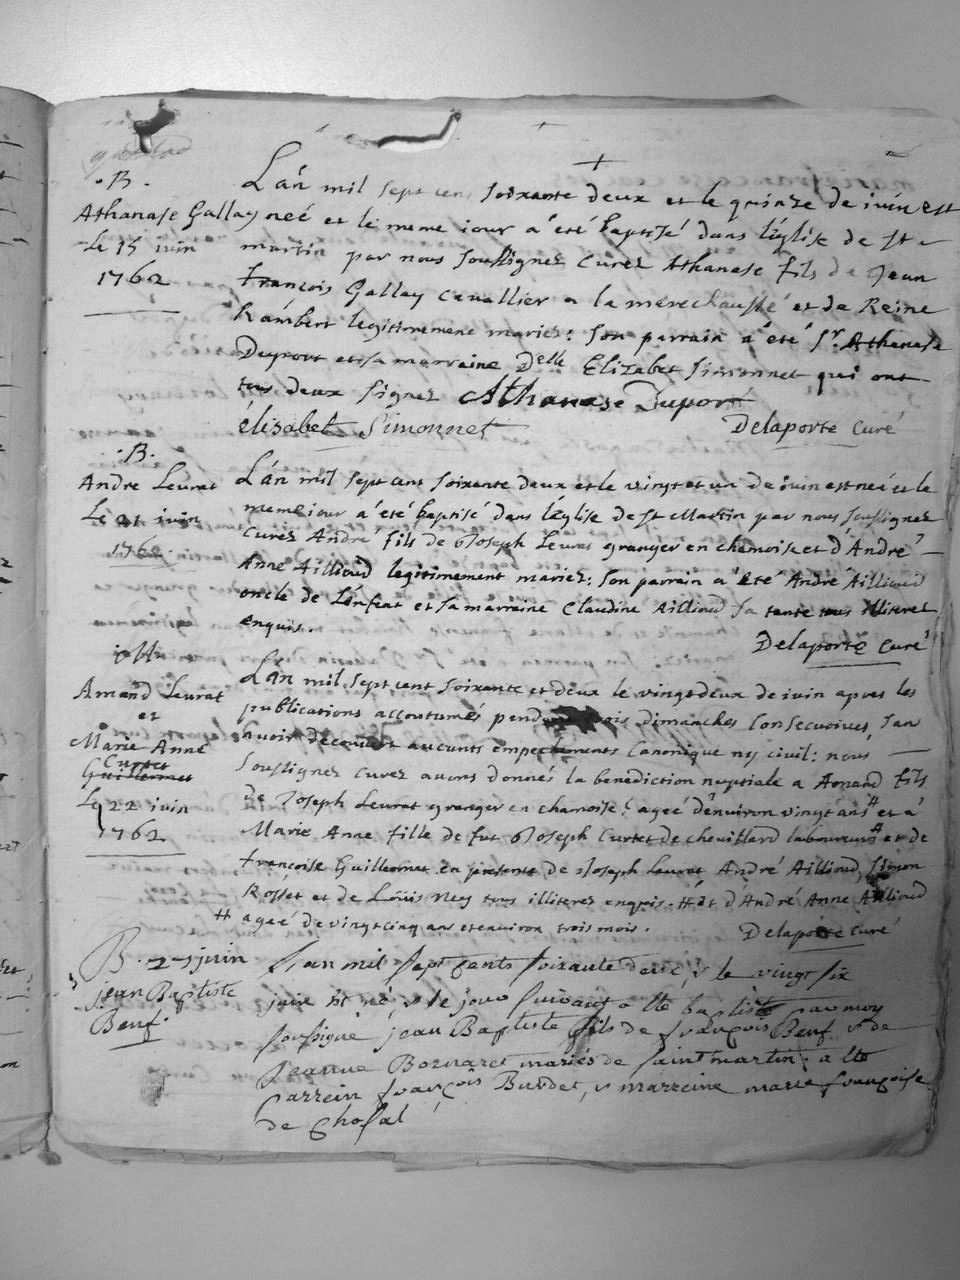 .B.
Athanase Gallay
Le 15 iuin
1762
L'an mil sept cens soixante deux et le quinze de iuin est
neé et le meme iour a été baptisé dans l'église de st
martin par nous soussignez Curez Athanase fils de Jean
francois Gallay cavallier a la marechaussé et de Reine
Rambert legitimement mariez: son parrain a été Sr. Athanase
Duport et sa marraine Delle Elizabet Simonnet qui ont
tous deux signez Athanase Duport
élisabet Simonnet Delaporte Curé
.B.
Andre Leurat
Le 21 iuin
1762
L'an mil sept cent soixante deux et le vingt et un de iuin est neé et le
meme iour a été baptisé dans l'église de st Martin par nous soussignez
Curez André fils de Joseph Leurat granger en chamoise et d'André
Anne Aillioud legitimement mariez: son parrain a été André Aillioud
oncle de l'enfent et sa marraine Claudine Ailliaud sa tante tous illiterez
enquis.
Delaporte Curé
Amand Leurat
et
Marie Anne
Curtet
Guillermet
Le 22 iuin
1762
L'an mil sept cent soixante et deux le vingt deux de iuin apres les
publications accoutumés pendant trois dimanches Consecutives, san
avoir decouvert aucunts empechements Canonique ny civil: nous
soussignez Curez avons donnés la benediction nuptiale a Amand fils
de Joseph Leurat granger en chamoise: ageé d'enuiron vingt ans # et a
Marie Anne fille de fut Joseph Curtet de chouillard laboureur et de
francoise Guillermet en presents de Joseph Leurat André Ailliaud, Simon
Rosset et de Loüis Ney tous illiterez enquis. # et d'André Anne Ailliaud
# ageé de vingt cinq ans et enuiron trois mois.
Delaporte Curé
B. 27 juin
jean Baptiste
Beuf.
L'an mil sept cents soixante deux, & le vingt six
juin est né & le jour suivant a été baptisé par moy
soussigné jean Baptiste fils de françois Beuf & de
jeanne Bornarel mariés de saint martin: a été
parrein françois Burdet, & marreine marie françoise
de Chosal